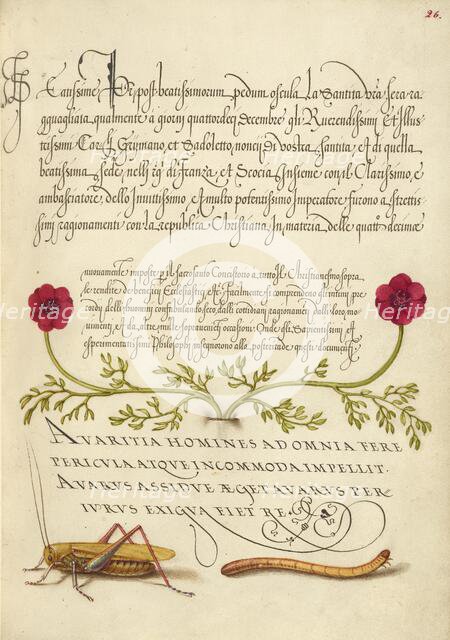 26.
Beatissime Pr̄. post beatissimorum pedum oscula. La Santita vr̄a sera ra-
gguagliata, qualmente a giorni quattordeci Decembre, gli Reverendissimi, Et Illus-
trissimi Car.li Grimano, et Sadoletto, noncij Di vostra Santita, et di quella
beatissima Sede, nelli di Franza, et Scocia, Insieme con il Clarissimo,
ambasciatore, dello Invittissimo, et molto potentissimo Imperatore, furono a strettis-
simi ragionamenti con la republica Christiana, In materia, delle quattro decimæ
nuovamente imposte il sacrosanto Concistoro Christianesmo sopra
le rendite de benefici Ecclesiastici Facilmente, si comprendono gl'intimi pre-
cordij delli huomini, quotidiani ragionamenti dalli loro, mo-
uimenti, et da altre mille occasione. Onde gli Sapientissimi et
esperimentatissimi Philosophi, insegnorono alla posteritade questi documenti.
AVARITIA HOMINES AD OMNIA FERE
PERICVLA ATQVE INCOMMODA IMPELLIT.
AVARVS ASSIDVE ÆGET. AVARVS PER
IVRVS EXIGVA FIET RE.
Heritage
Images